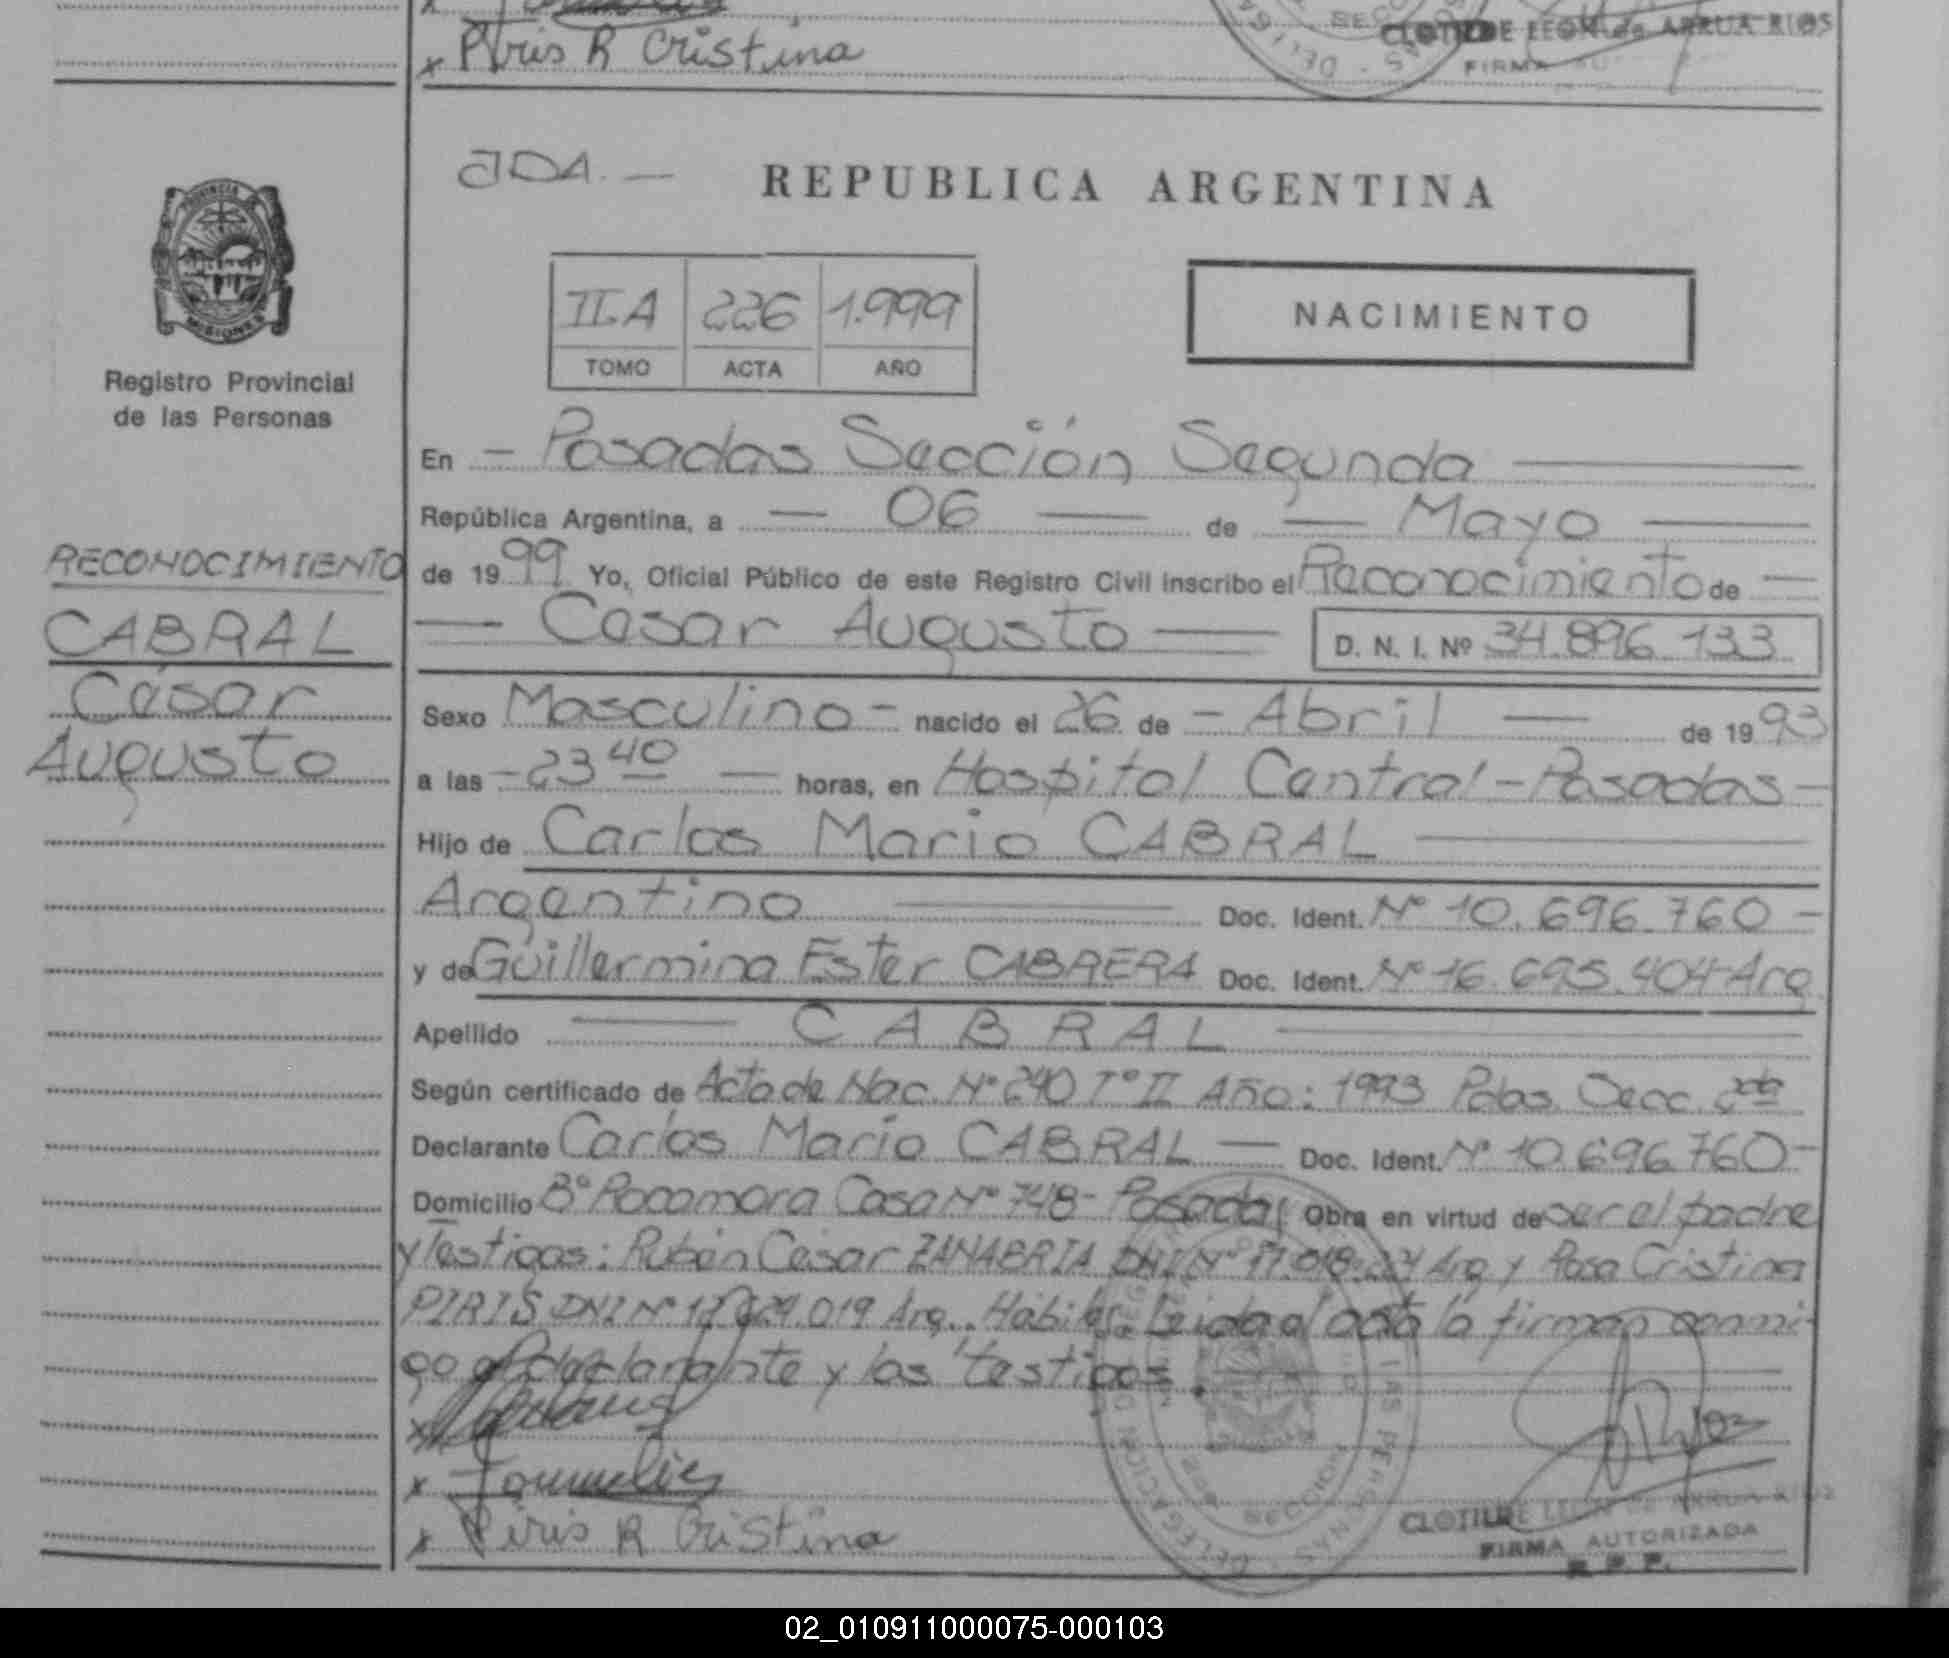 x Piris R Cristina
CLOTILDE LEON de ARRUA RIOS
FIRMA
JDA.—
REPUBLICA ARGENTINA
PROVINCIA DE
MISIONES
Registro Provincial
de las Personas
II.A 226 1.999
TOMO ACTA AÑO
NACIMIENTO
RECONOCIMIENTO
CABRAL
César
Augusto
En — Posadas Sección Segunda —
República Argentina, a — 06 — de — Mayo —
de 1999 Yo, Oficial Público de este Registro Civil inscribo el Reconocimiento de —
— Cesar Augusto — D. N. I. Nº 34.896.133
Sexo Masculino - nacido el 26 de - Abril — de 1993
a las - 23 40 — horas, en Hospital Central - Posadas -
Hijo de Carlos Mario CABRAL —
Argentino — Doc. Ident. Nº 10.696.760 -
y de Guillermina Ester CABRERA Doc. Ident. Nº 16.695.404 Arg
Apellido — CABRAL —
Según certificado de Acta de Nac. Nº 240 Tº II Año: 1993 Pdas. Secc. 2da
Declarante Carlos Mario CABRAL — Doc. Ident. Nº 10.696.760 -
Domicilio Bº Rocamora Casa Nº 748 - Posadas Obra en virtud de ser el padre
y Testigos: Rubén César ZANABRIA DNI Nº Arg y Rosa Cristina
PIRIS DNI Nº Arg.. Hábiles Leida el acta la firman conmi-
go el declarante y los testigos.
x
x
x Piris R Cristina
CLOTILDE LEON DE ARRUA RIOS
FIRMA AUTORIZADA
R. P. P.
02_010911000075-000103